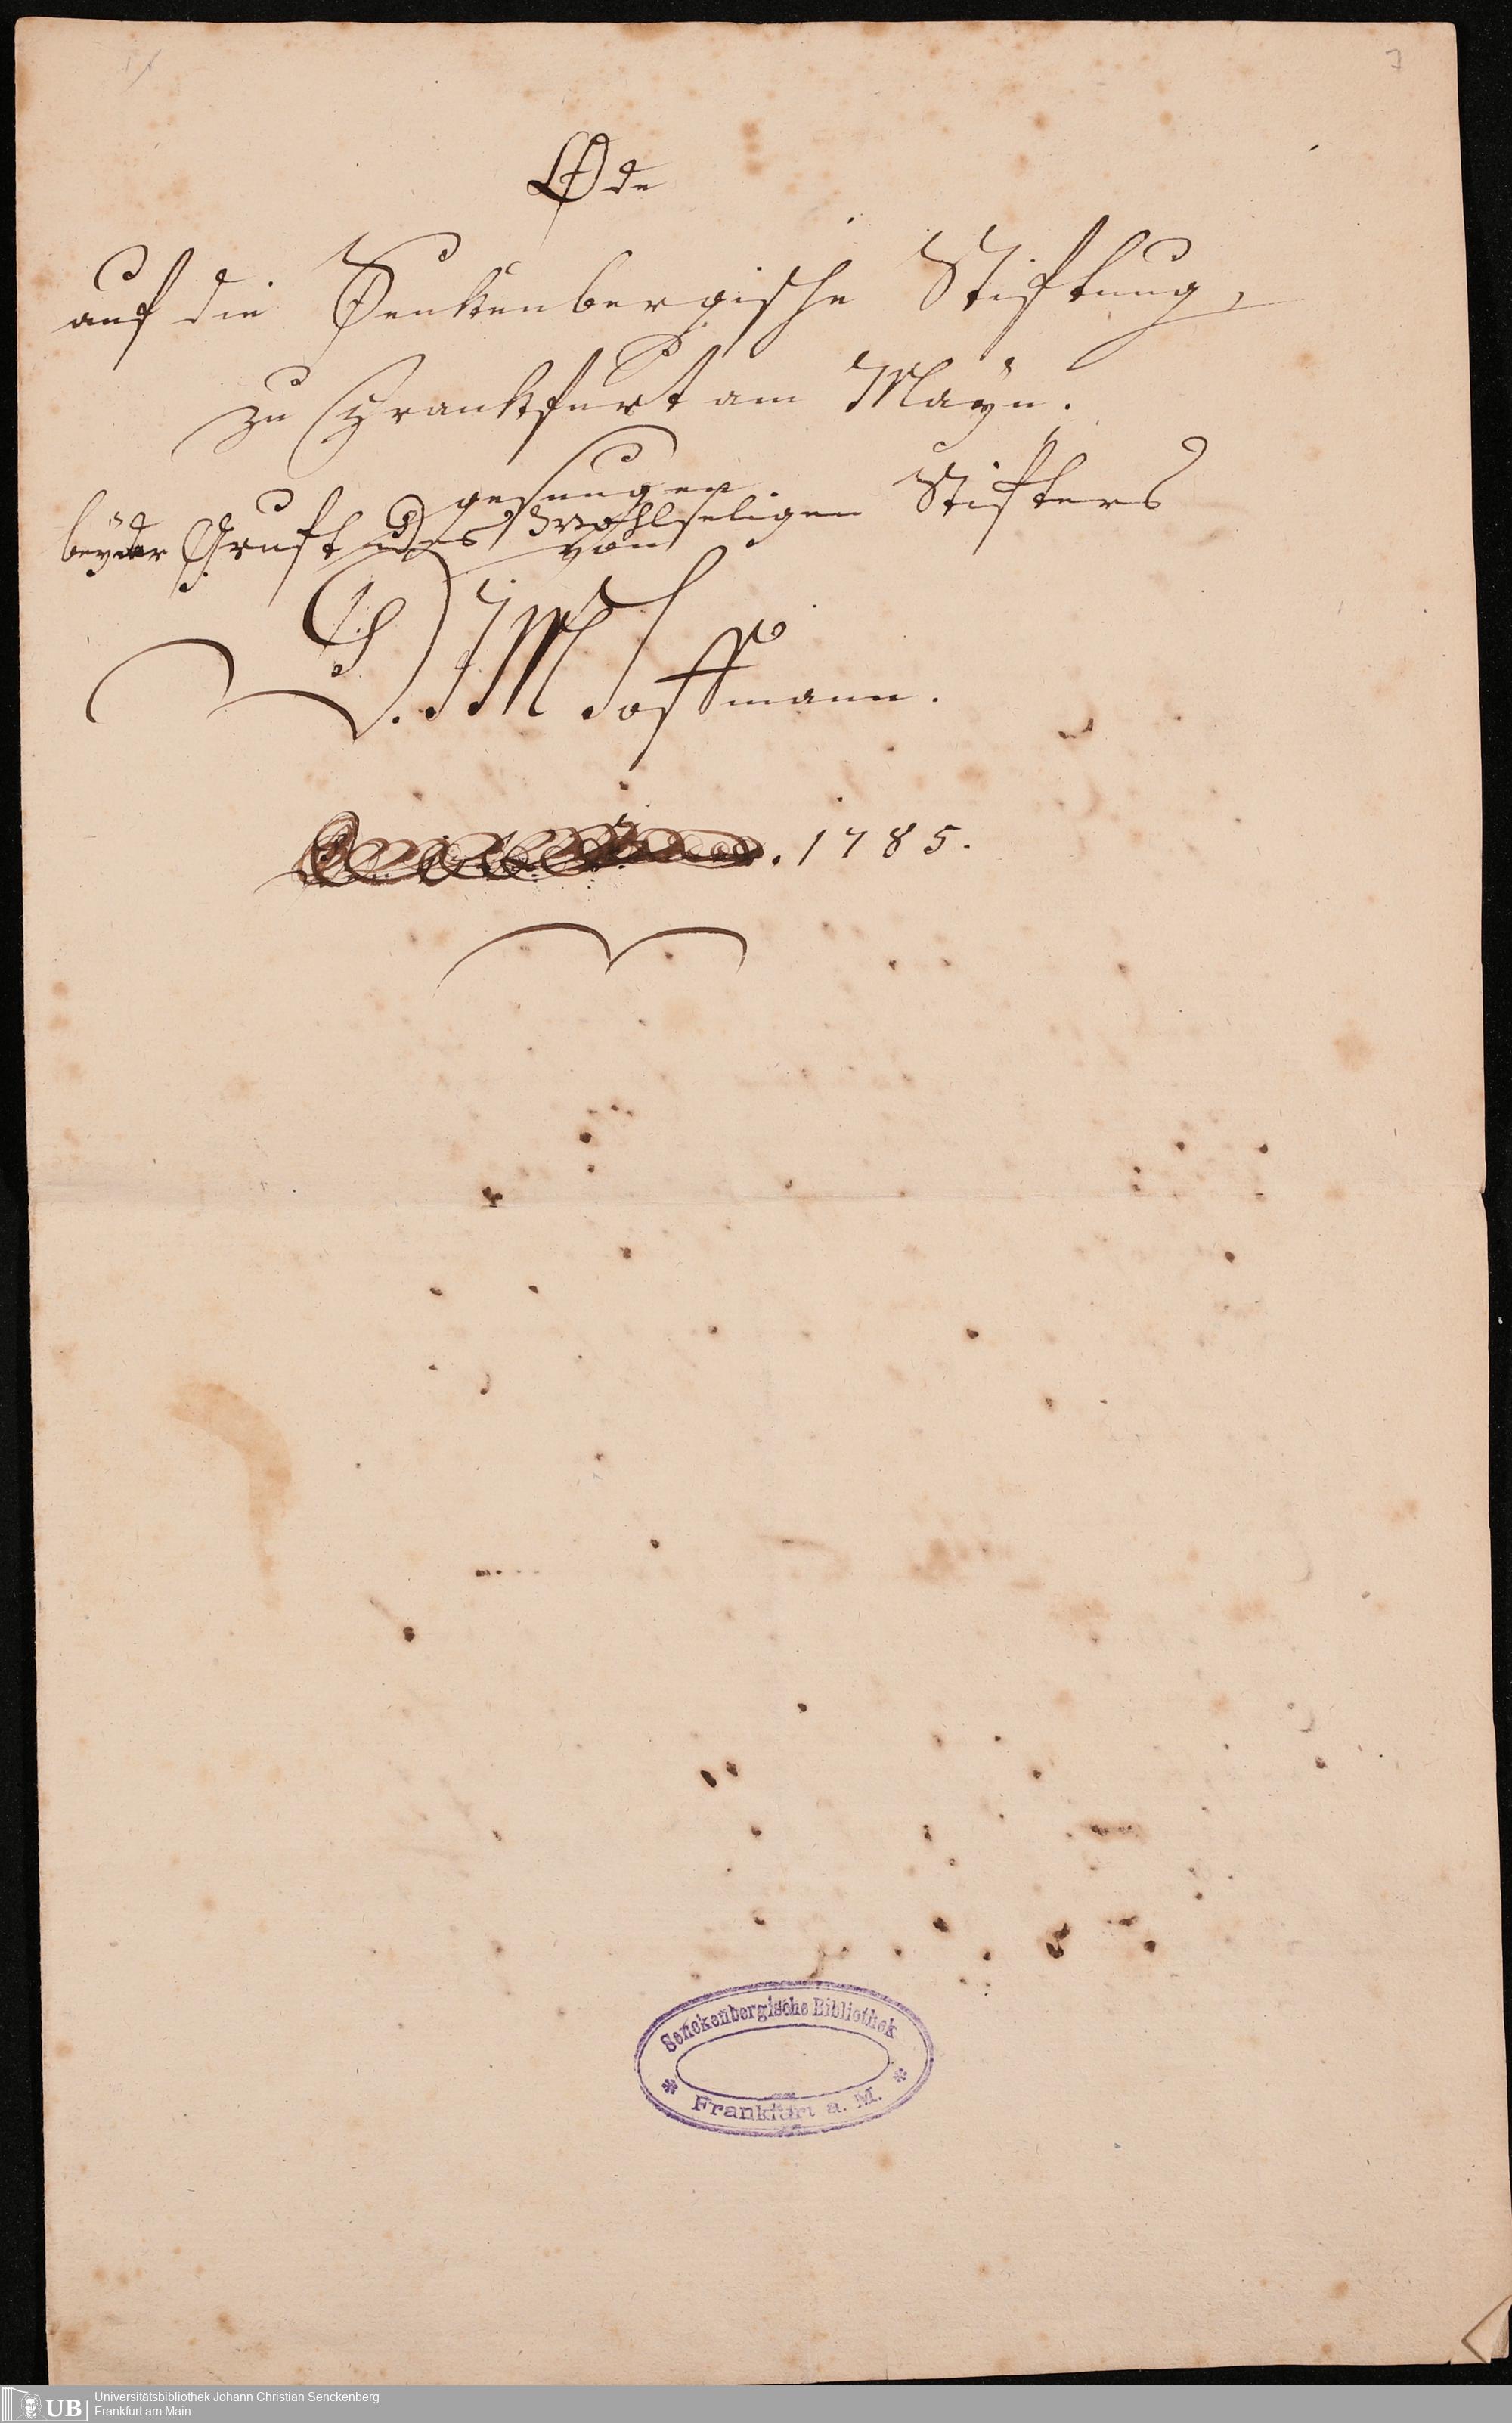 7
Ode
auf die Senkenbergische Stiftung,
zu Frankfurt am Mayn.
gesungen
bey der Gruft des Wohlseligen Stifters
von
D. J M Hoffmann.
. 1785.
Senckenbergische Bibliothek
Frankfurt a. M.
UB
Universitätsbibliothek Johann Christian Senckenberg
Frankfurt am Main